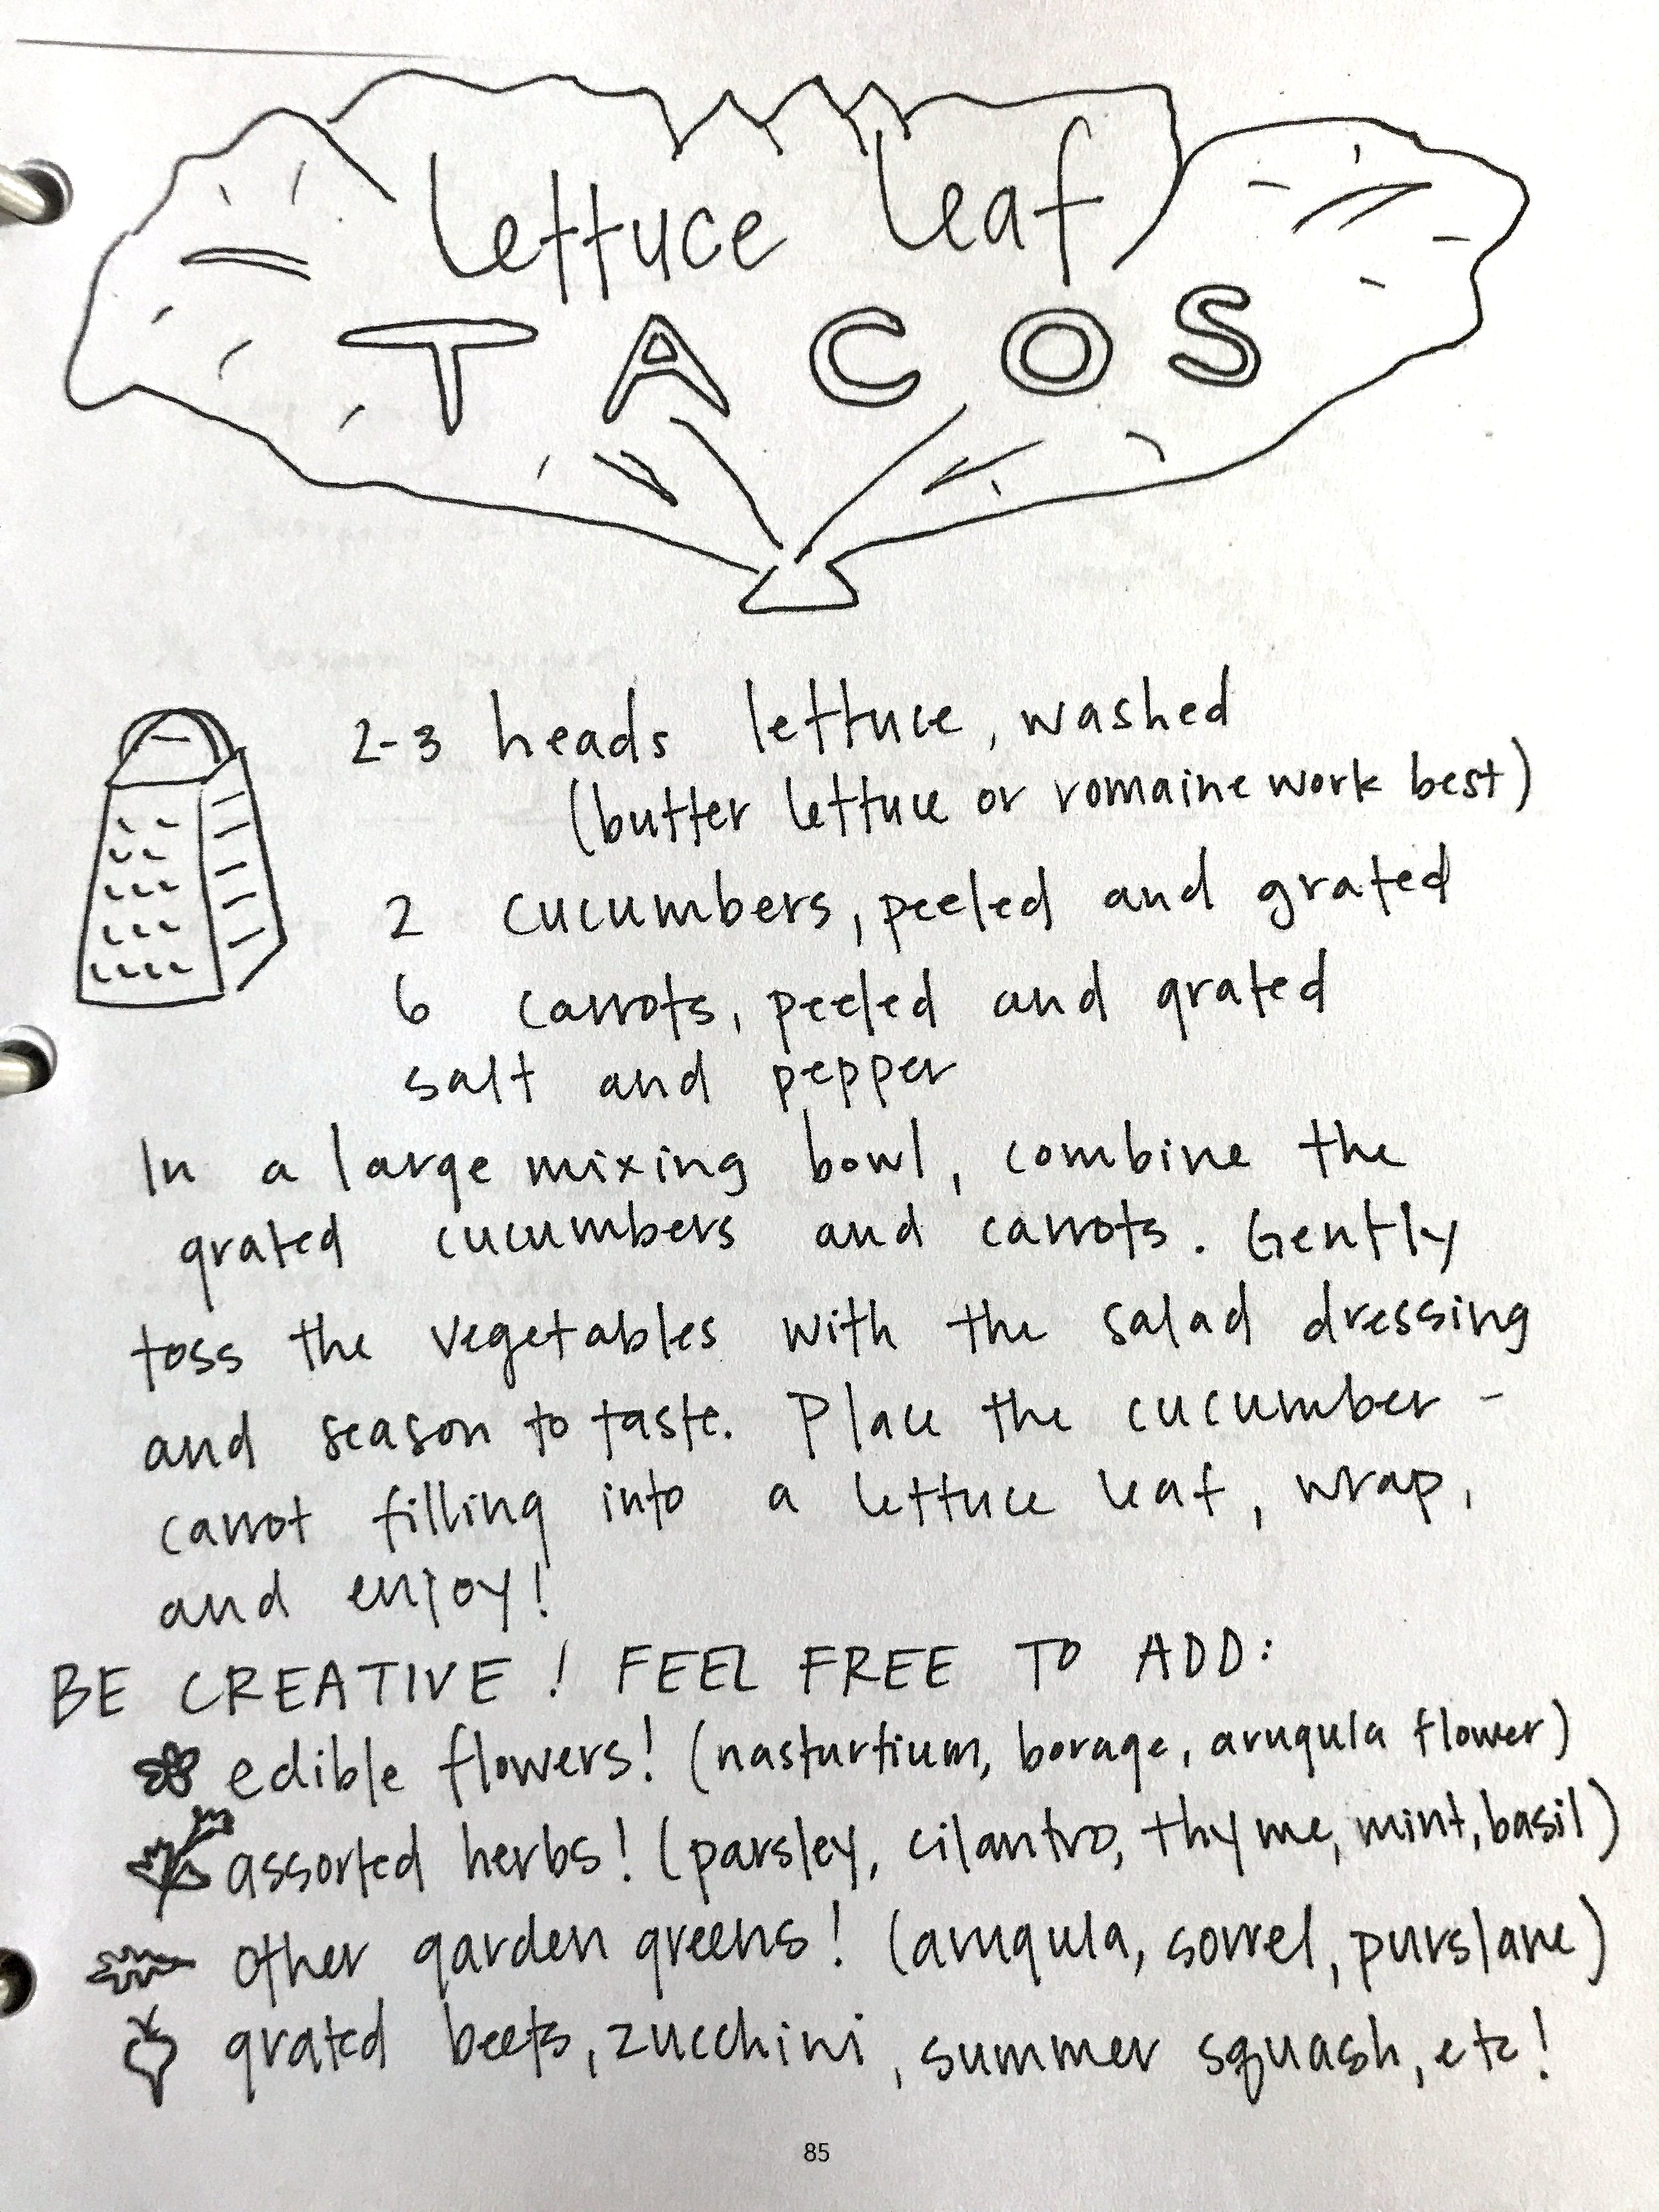 Lettuce Leaf
TACOS
2-3 heads lettuce, washed
(butter lettuce or romaine work best)
2 cucumbers, peeled and grated
6 carrots, peeled and grated
salt and pepper
In a large mixing bowl, combine the
grated cucumbers and carrots. Gently
toss the vegetables with the salad dressing
and season to taste. Place the cucumber-
carrot filling into a lettuce leaf, wrap,
and enjoy!
BE CREATIVE! FEEL FREE TO ADD:
edible flowers! (nasturtium, borage, arugula flower)
assorted herbs! (parsley, cilantro, thyme, mint, basil)
other garden greens! (arugula, sorrel, purslane)
grated beets, zucchini, summer squash, etc!
85